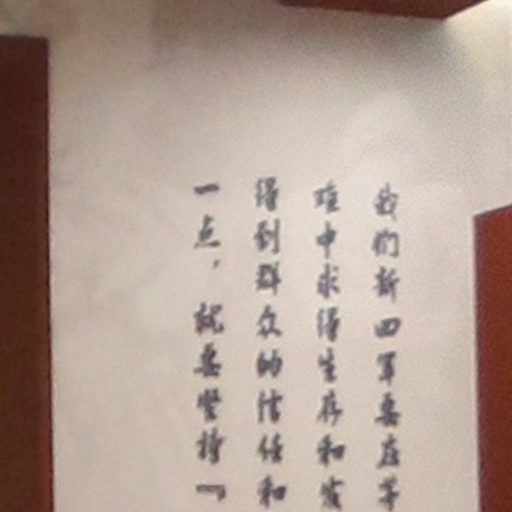 我们新四军要在艰
难中求得生存和发
得到群众的信任和
一点，就要坚持『